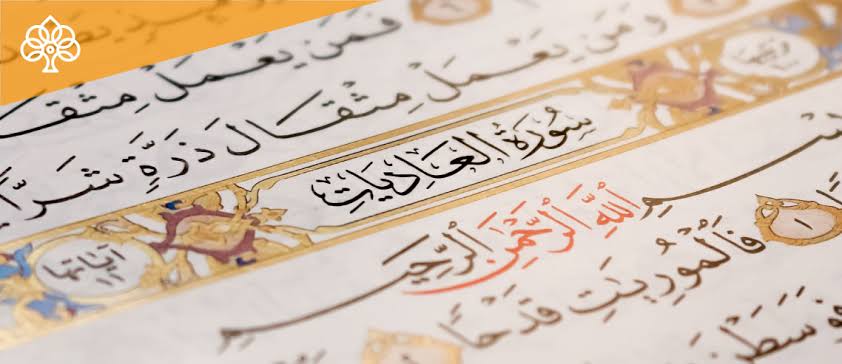 فَمَن يَعْمَلْ مِثْقَا
وَمَن يَعْمَلْ مِثْقَالَ ذَرَّةٍ شَرًّا
سُورَةُ العَادِيَاتِ
آياتها ١١
بِسْمِ اللَّهِ الرَّحْمَنِ الرَّحِيمِ
١ فَالْمُورِيَتِ قَدْحًا
فَوَسَطْنَ